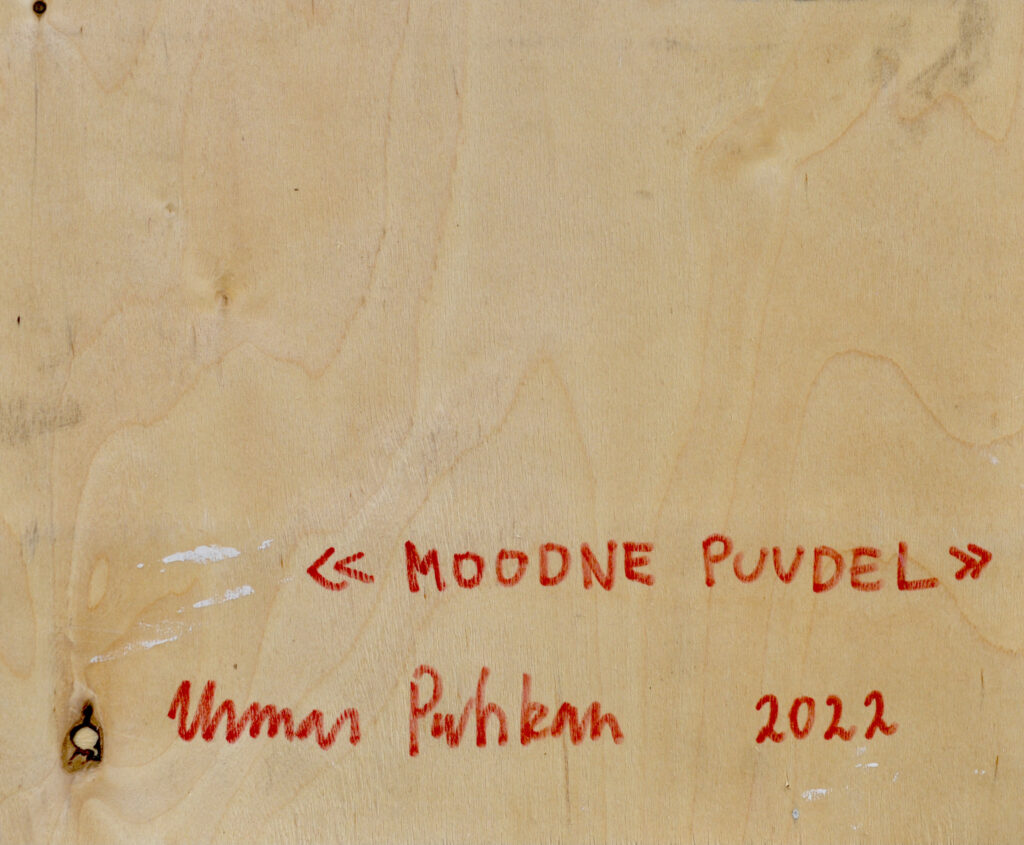 « MOODNE PUUDEL »
Urmas Puhkan 2022